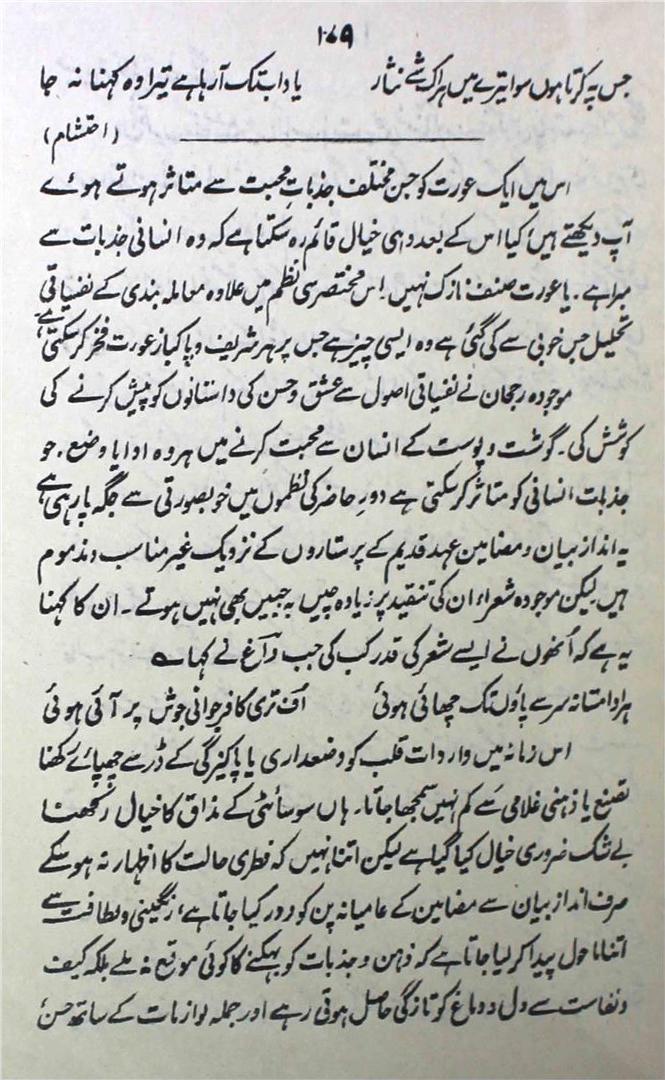 ۱۷۹
جس پہ کرتا ہوں سوا تیرے میں ہر اک شے نثار یاد ابتک آرہا ہے تیرا وہ کہنا نہ جا
(احتشام)
اس میں ایک عورت کو جن مختلف جذباتِ محبت سے متاثر ہوتے ہوئے
آپ دیکھتے ہیں کیا اس کے بعد وہی خیال قائم رہ سکتا ہے کہ وہ انسانی جذبات سے
مبرا ہے۔ یا عورت صنف نازک نہیں۔ اس مختصر سی نظم میں علاوہ معاملہ بندی کے نفسیاتی
تحلیل جس خوبی سے کی گئی ہے وہ ایسی چیز ہے جس پر ہر شریف و پاکباز عورت فخر کر سکتی ہے
موجودہ رجحان نے نفسیاتی اصول سے عشق و حسن کی داستانوں کو پیش کرنے کی
کوشش کی۔ گوشت و پوست کے انسان سے محبت کرنے میں ہر وہ ادا یا وضع، جو
جذبات انسانی کو متاثر کر سکتی ہے دورِ حاضر کی نظموں میں خوبصورتی سے جگہ پا رہی ہے
یہ انداز بیان و مضامین عہد قدیم کے پرستاروں کے نزدیک غیر مناسب و مذموم
ہیں لیکن موجودہ شعراء ان کی تنقید پر زیادہ چیں بہ جبیں بھی نہیں ہوتے۔ ان کا کہنا
یہ ہے کہ اُنھوں نے ایسے شعر کی قدر کب کی جب داغ نے کہا ؎
ہر ادا مستانہ سر سے پاؤں تک چھائی ہوئی اف تری کافر جوانی جوش پر آئی ہوئی
اس زمانہ میں واردات قلب کو وضعداری یا پاکیزگی کے ڈر سے چھپائے رکھنا
تصنع یا ذہنی غلامی سے کم نہیں سمجھا جاتا۔ ہاں سوسائٹی کے مذاق کا خیال رکھنا
بے شک ضروری خیال کیا گیا ہے لیکن اتنا نہیں کہ فطری حالت کا اظہار نہ ہو سکے
صرف انداز بیان سے مضامین کے عامیانہ پن کو دور کیا جاتا ہے، رنگینی و لطافت سے
اتنا ماحول پیدا کر لیا جاتا ہے کہ ذہن و جذبات کو بہکنے کا کوئی موقع نہ ملے بلکہ کیف
و نفاست سے دل و دماغ کو تازگی حاصل ہوتی رہے اور جملہ لوازمات کے ساتھ حسن